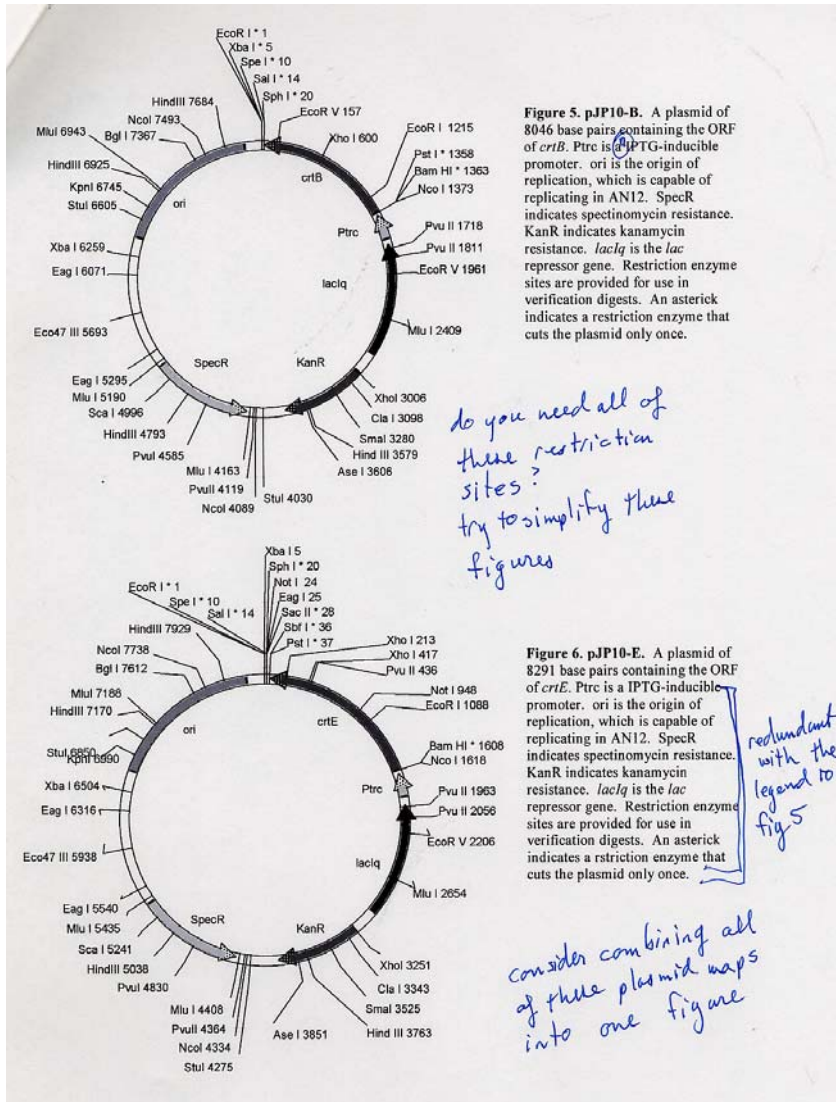 EcoR I * 1
Xba I * 5
Spe I * 10
Sal I * 14
Sph I * 20
EcoR V 157
Xho I 600
EcoR I 1215
Pst I * 1358
Bam HI * 1363
Nco I 1373
Pvu II 1718
Pvu II 1811
EcoR V 1961
Mlu I 2409
XhoI 3006
Cla I 3098
SmaI 3280
Hind III 3579
Ase I 3606
StuI 4030
NcoI 4089
PvuII 4119
Mlu I 4163
PvuI 4585
HindIII 4793
Sca I 4996
Mlu I 5190
Eag I 5295
Eco47 III 5693
Eag I 6071
Xba I 6259
StuI 6605
KpnI 6745
HindIII 6925
MluI 6943
Bgl I 7367
NcoI 7493
HindIII 7684
crtB
Ptrc
lacIq
KanR
SpecR
ori
Figure 5. pJP10-B. A plasmid of
8046 base pairs containing the ORF
of crtB. Ptrc is a IPTG-inducible
promoter. ori is the origin of
replication, which is capable of
replicating in AN12. SpecR
indicates spectinomycin resistance.
KanR indicates kanamycin
resistance. lacIq is the lac
repressor gene. Restriction enzyme
sites are provided for use in
verification digests. An asterick
indicates a restriction enzyme that
cuts the plasmid only once.
do you need all of
these restriction
sites?
try to simplify these
figures
Xba I 5
Sph I * 20
Not I 24
Eag I 25
Sac II * 28
Sbf I * 36
Pst I * 37
EcoR I * 1
Spe I * 10
Sal I * 14
Xho I 213
Xho I 417
Pvu II 436
Not I 948
EcoR I 1088
Bam HI * 1608
Nco I 1618
Pvu II 1963
Pvu II 2056
EcoR V 2206
Mlu I 2654
XhoI 3251
Cla I 3343
SmaI 3525
Hind III 3763
Ase I 3851
StuI 4275
NcoI 4334
PvuII 4364
Mlu I 4408
PvuI 4830
HindIII 5038
Sca I 5241
Mlu I 5435
Eag I 5540
Eco47 III 5938
Eag I 6316
Xba I 6504
StuI 6850
KpnI 6990
HindIII 7170
MluI 7188
Bgl I 7612
NcoI 7738
HindIII 7929
crtE
Ptrc
lacIq
KanR
SpecR
ori
Figure 6. pJP10-E. A plasmid of
8291 base pairs containing the ORF
of crtE. Ptrc is a IPTG-inducible
promoter. ori is the origin of
replication, which is capable of
replicating in AN12. SpecR
indicates spectinomycin resistance.
KanR indicates kanamycin
resistance. lacIq is the lac
repressor gene. Restriction enzyme
sites are provided for use in
verification digests. An asterick
indicates a rstriction enzyme that
cuts the plasmid only once.
redundant
with the
legend to
fig 5
consider combining all
of these plasmid maps
into one figure